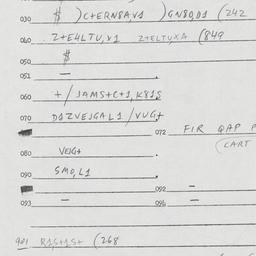 030 $ )C+ERN8AV1 )GN80,D1 (242
060 Z+E4LTU,V1 Z+ELTUXA (849
050 $
051 — .
060 +/JAMS+C+1,K81S
070 D1ZVEJGAL1/VUG+
072 FIR QAP P
(CART
080 VEIG+ .
090 SMO,L1 .
092 —
093 — . 096 —
901 R1S+1S+ (268